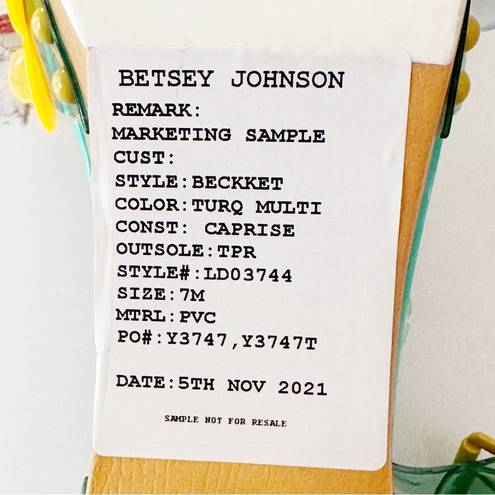 BETSEY JOHNSON
REMARK:
MARKETING SAMPLE
CUST:
STYLE:BECKKET
COLOR:TURQ MULTI
CONST: CAPRISE
OUTSOLE:TPR
STYLE#:LD03744
SIZE:7M
MTRL:PVC
PO#:Y3747,Y3747T
DATE:5TH NOV 2021
SAMPLE NOT FOR RESALE